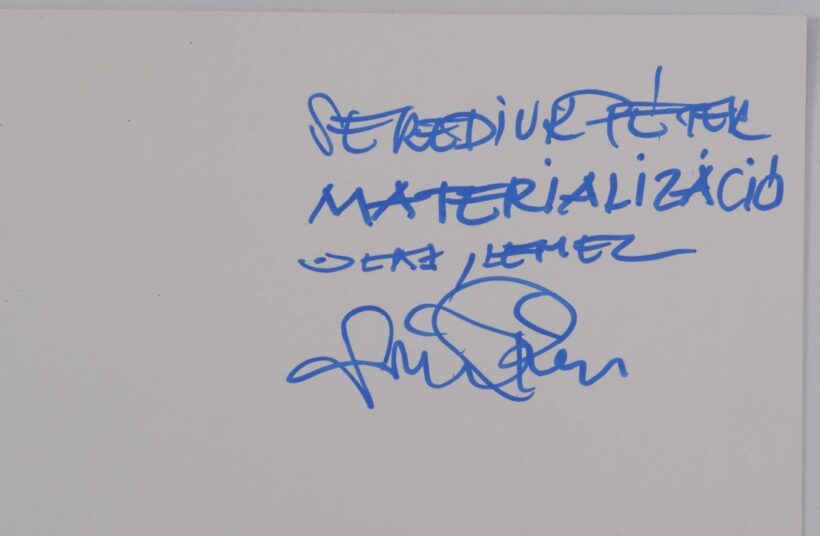 SEREDIUK PÉTER
MATERIALIZÁCIÓ
LEMEZ